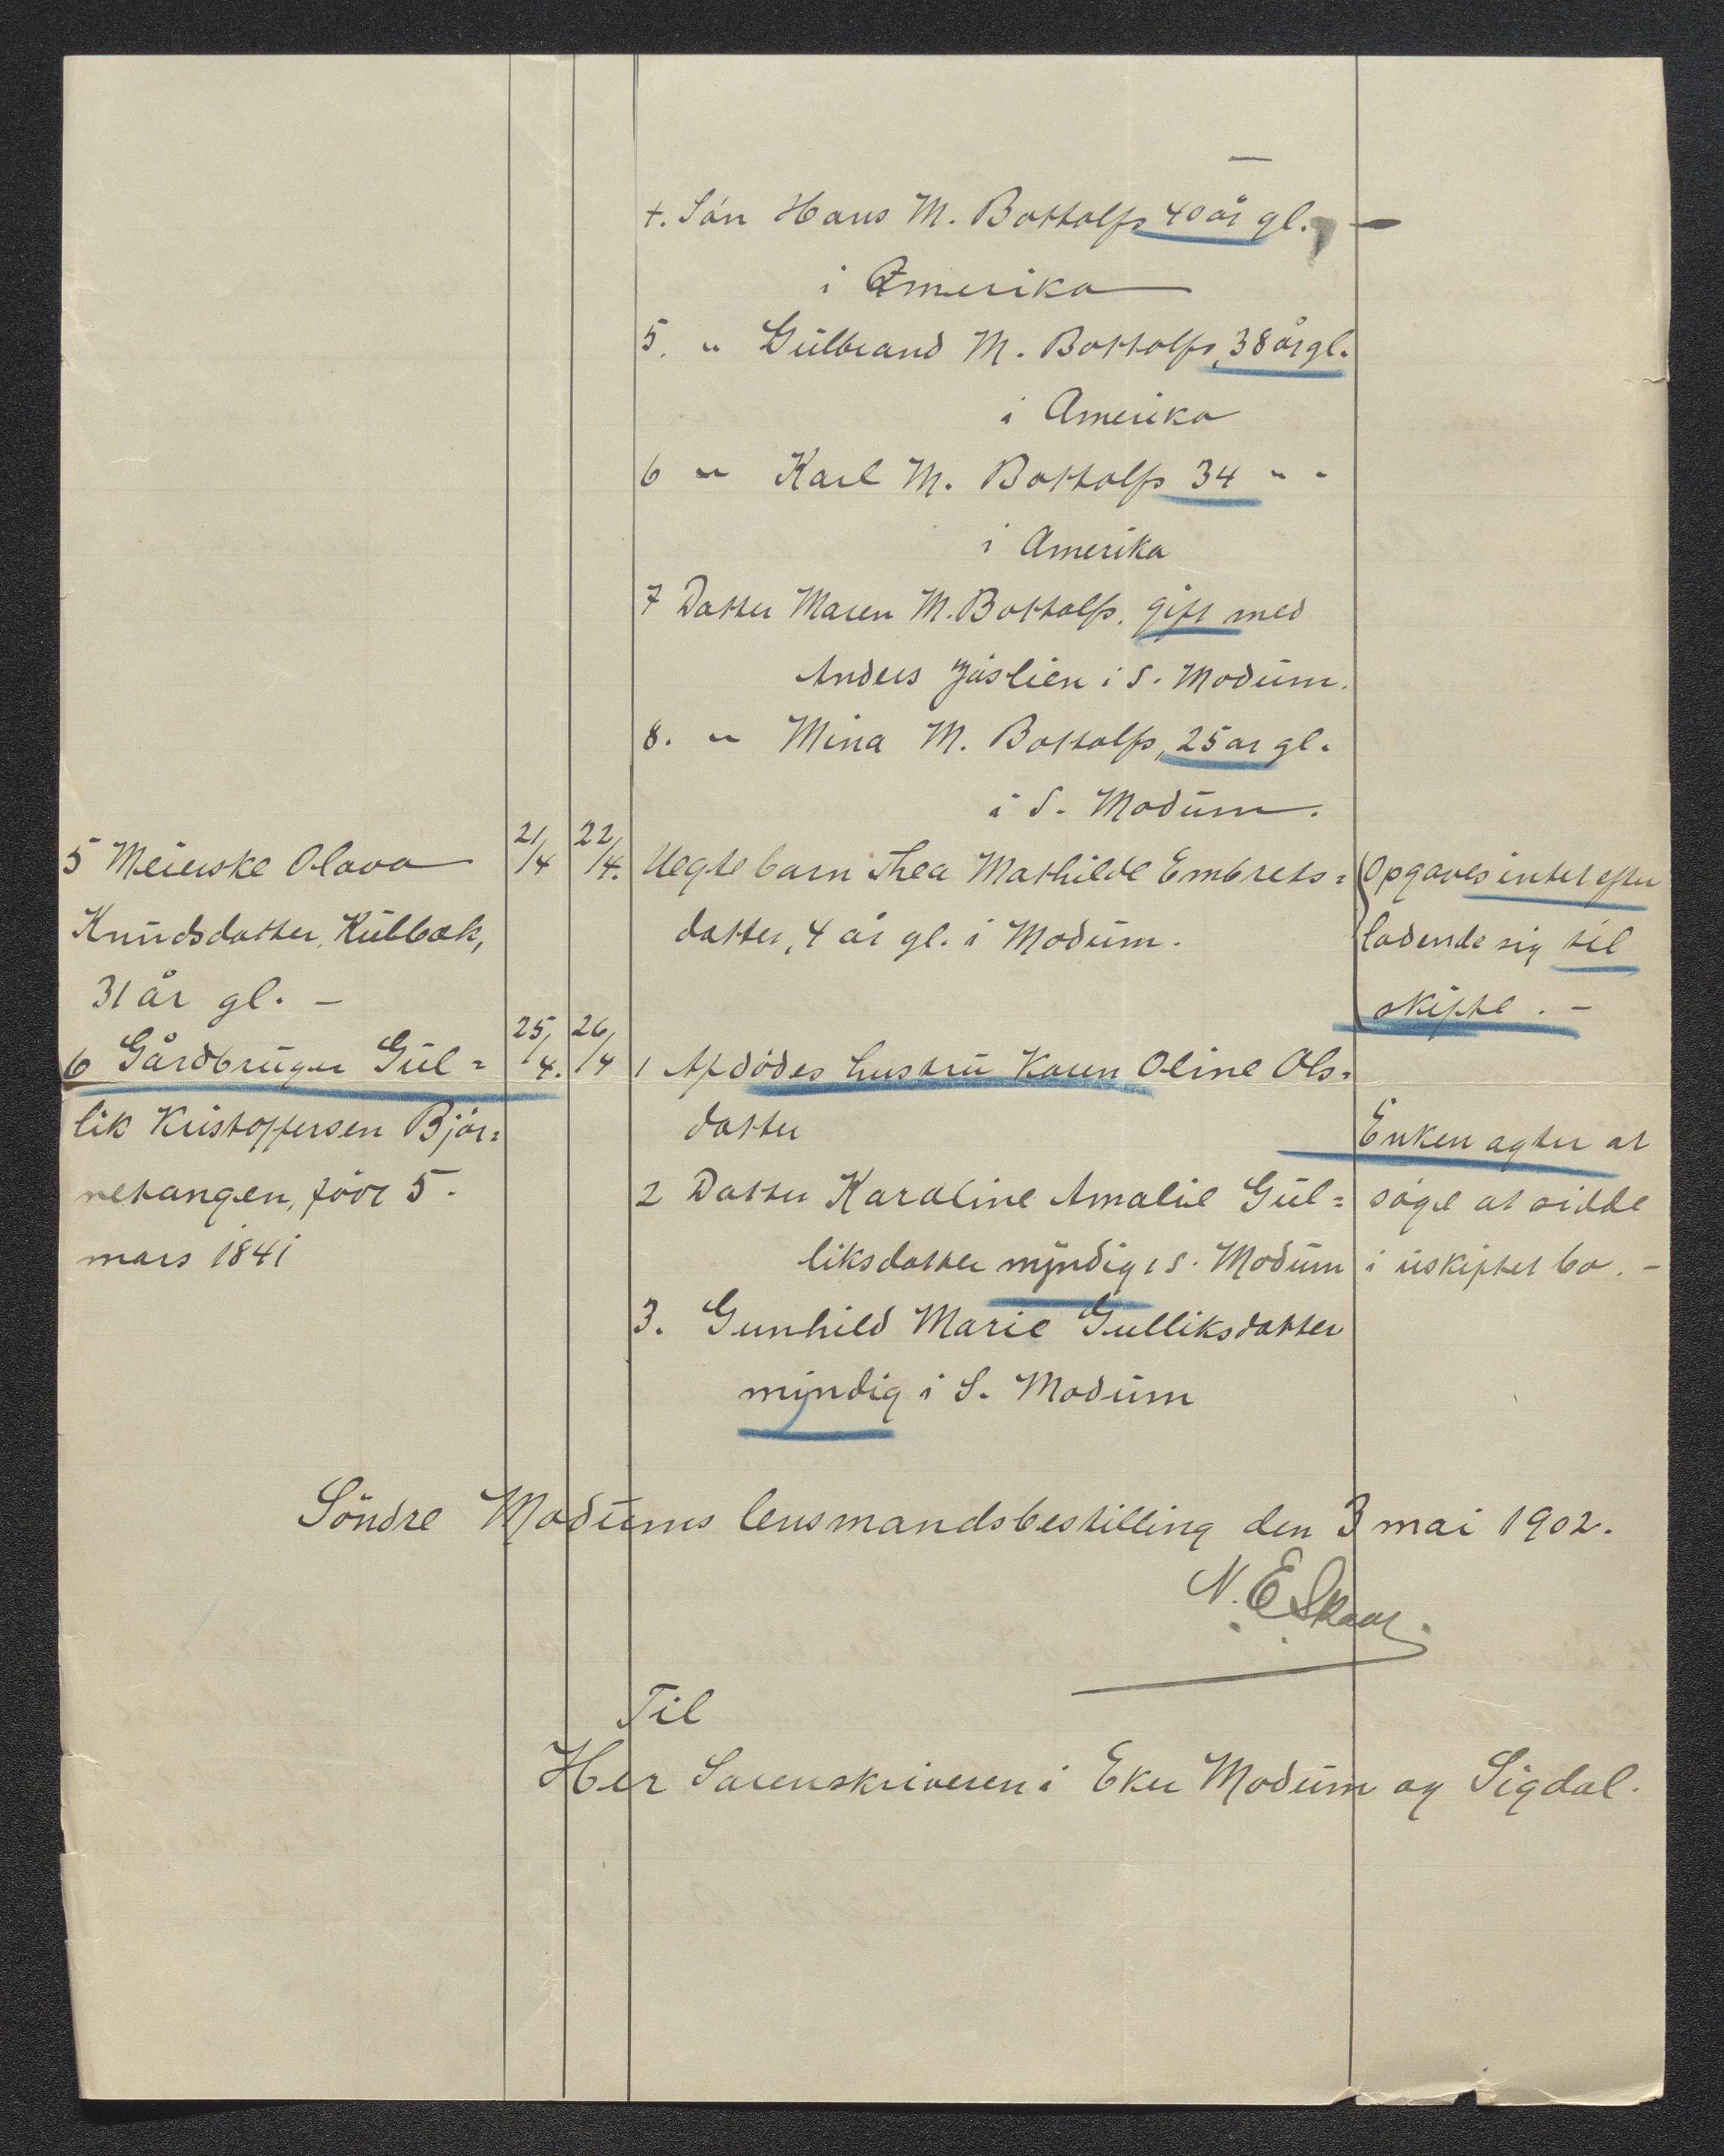 4. Sön Hans M. Bottolfs 40 år gl. —
i Amerika
5. " Gulbrand M. Bottolfs, 38 år gl.
i Amerika
6 " Karl M. Bottolfs 34 " "
i Amerika
7 Datter Maren M. Bottolfs. gift med
Anders i S. Modum.
8. " Mina M. Bottolfs, 25 år gl.
i S. Modum.
5 Meierske Olava 21/4 22/4. Uegte barn Thea Mathilde Embrets= Opgaves intet efter
Knudsdatter, Kulbak, datter, 4 år gl. i Modum. ladende sig til
31 år gl. — skifte. —
6 Gårdbruger Gul= 25/4. 26/4 1 Afdödes hustru Karen Oline Ols=
lik Kristoffersen Björ= datter Enken agter at
netangen, född 5. 2 Datter Karoline Amalie Gul= söge at sidde
mars 1841 liksdatter myndig i S. Modum i uskiftet bo. —
3. Gunhild Marie Gulliksdatter
myndig i S. Modum
Söndre Modums lensmandsbestilling den 3 mai 1902.
N. E. Skaar.
Til
Herr Sorenskriveren i Eker Modum og Sigdal.